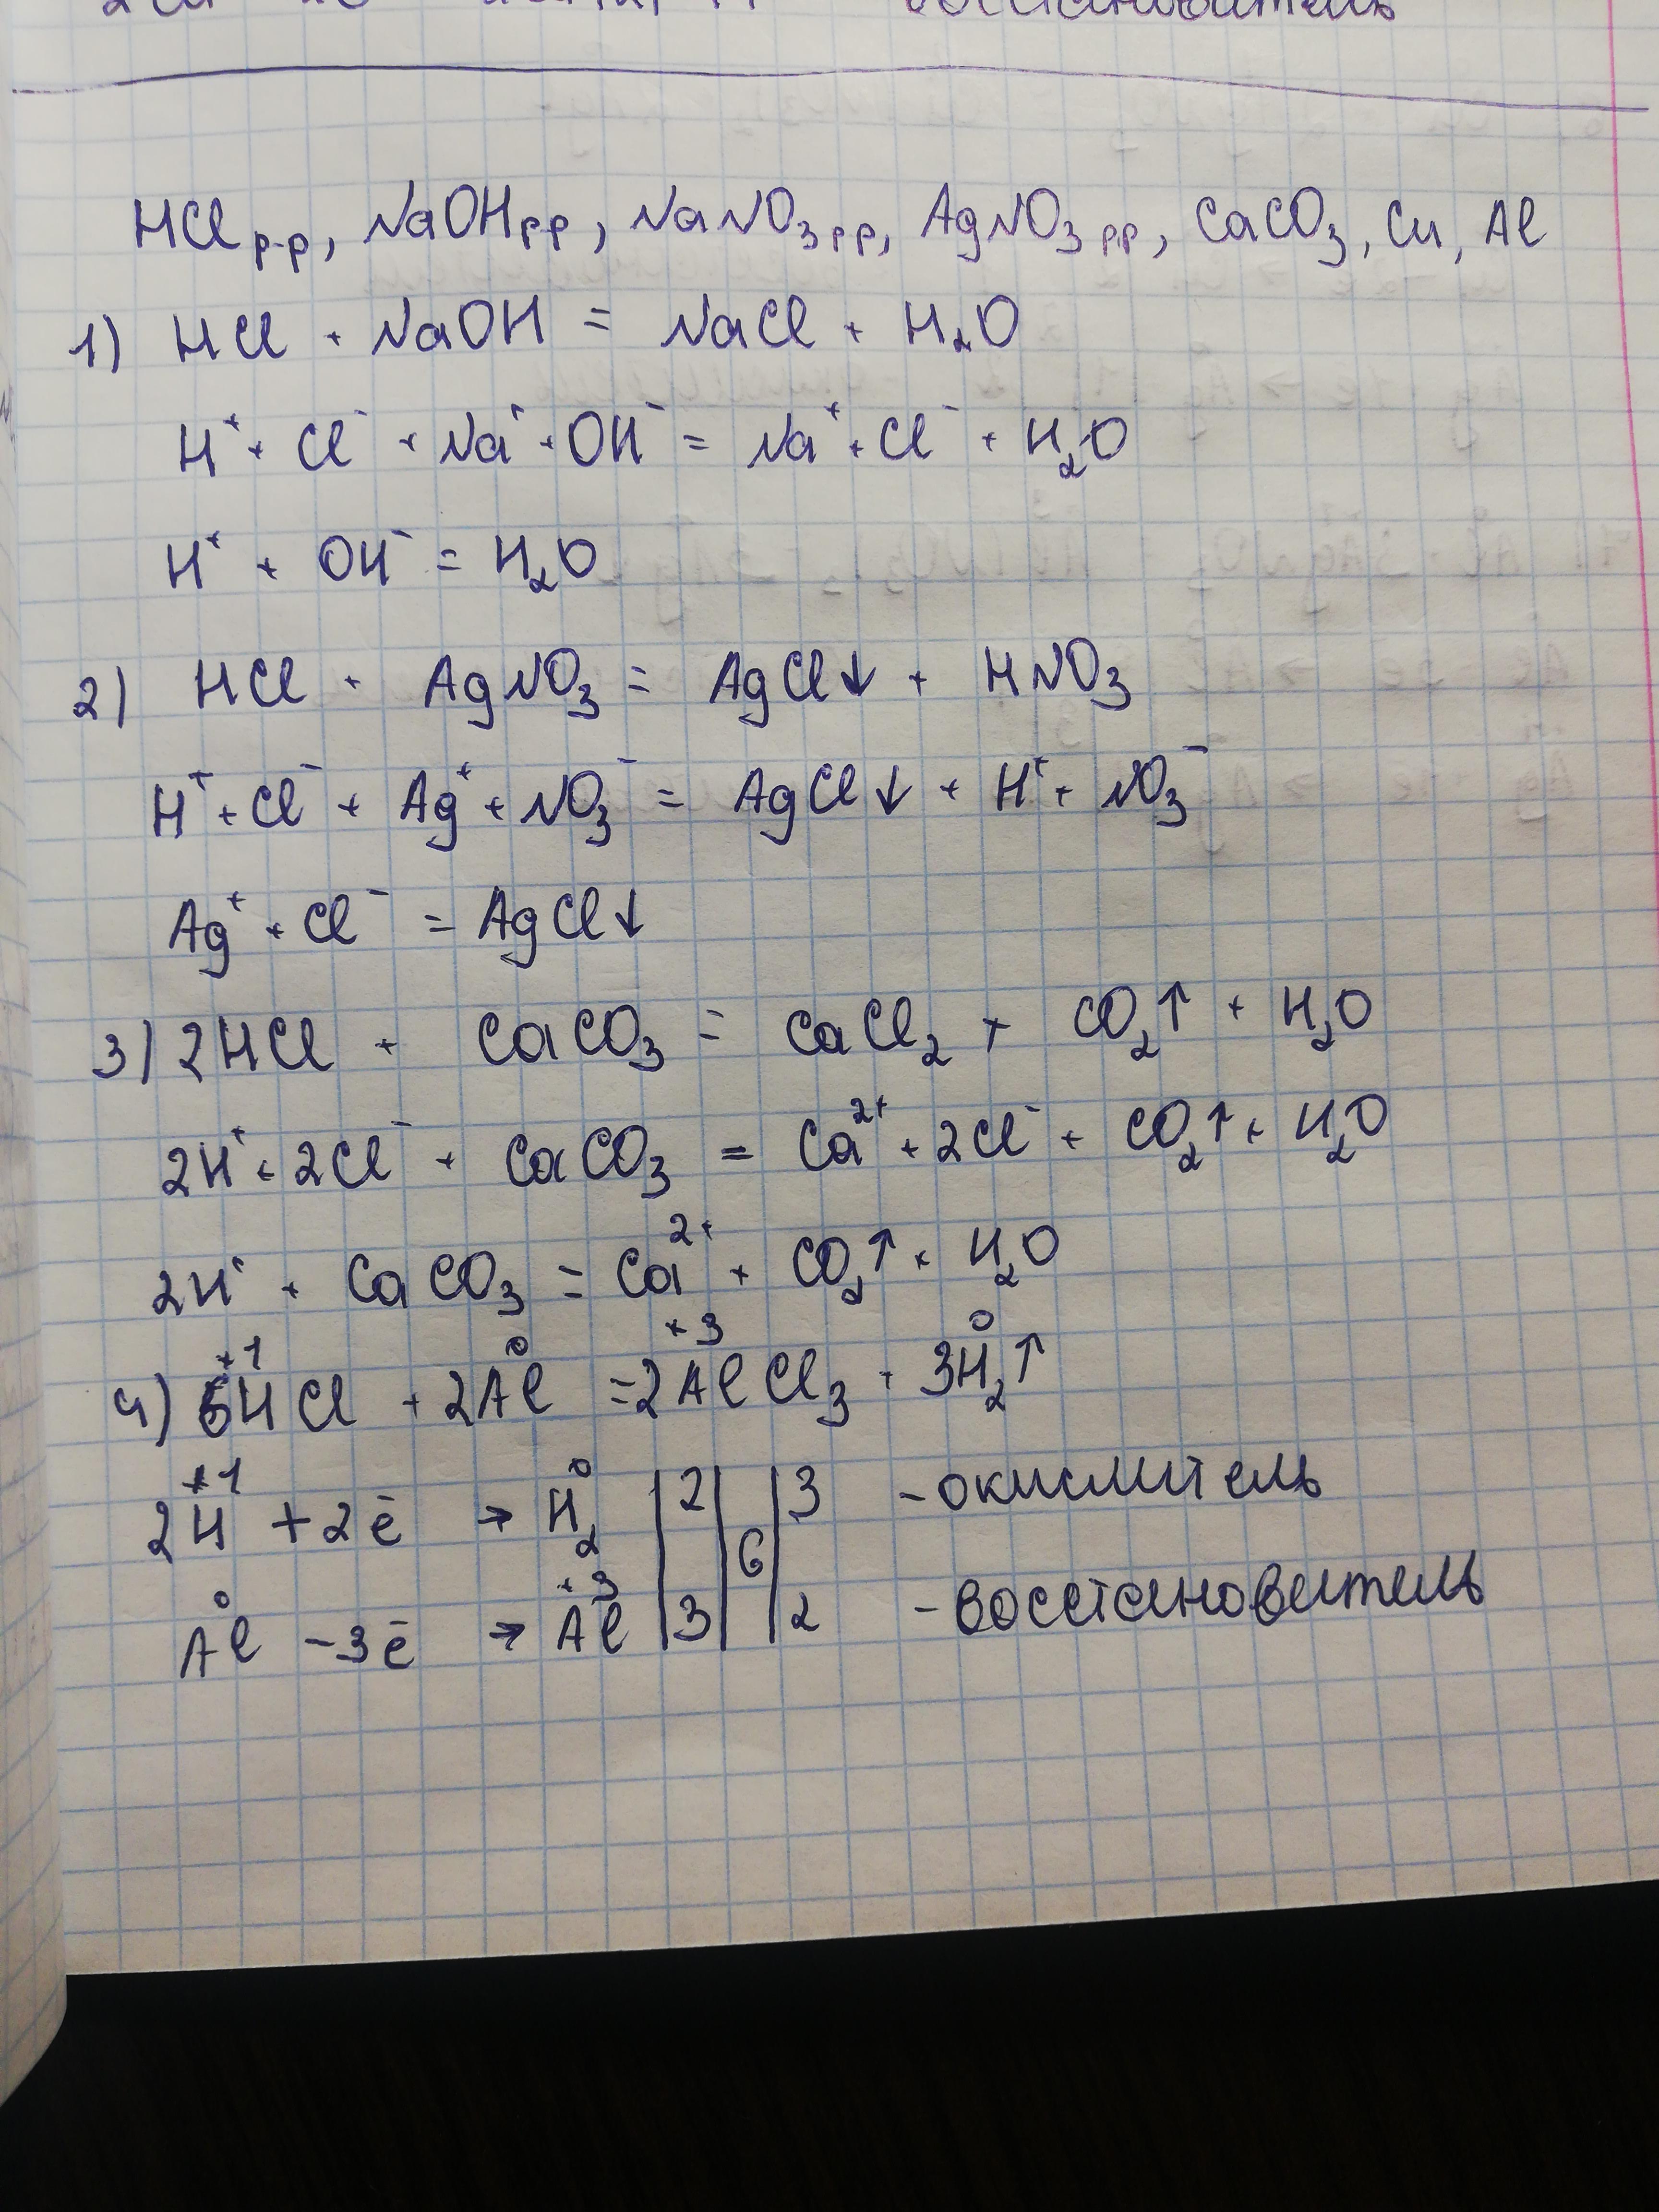 восстановитель
HCl р-р, NaOH р-р, NaNO₃ р-р, AgNO₃ р-р, CaCO₃, Cu, Al
1) HCl + NaOH = NaCl + H₂O
H⁺ + Cl⁻ + Na⁺ + OH⁻ = Na⁺ + Cl⁻ + H₂O
H⁺ + OH⁻ = H₂O
2) HCl + AgNO₃ = AgCl↓ + HNO₃
H⁺ + Cl⁻ + Ag⁺ + NO₃⁻ = AgCl↓ + H⁺ + NO₃⁻
Ag⁺ + Cl⁻ = AgCl↓
3) 2HCl + CaCO₃ = CaCl₂ + CO₂↑ + H₂O
2H⁺ + 2Cl⁻ + CaCO₃ = Ca²⁺ + 2Cl⁻ + CO₂↑ + H₂O
2H⁺ + CaCO₃ = Ca²⁺ + CO₂↑ + H₂O
+1 0 +3 0
4) 6HCl + 2Al = 2AlCl₃ + 3H₂↑
+1 0
2H + 2ē → H₂ | 2 | | 3 - окислитель
6
0 +3
Al - 3ē → Al | 3 | | 2 - восстановитель